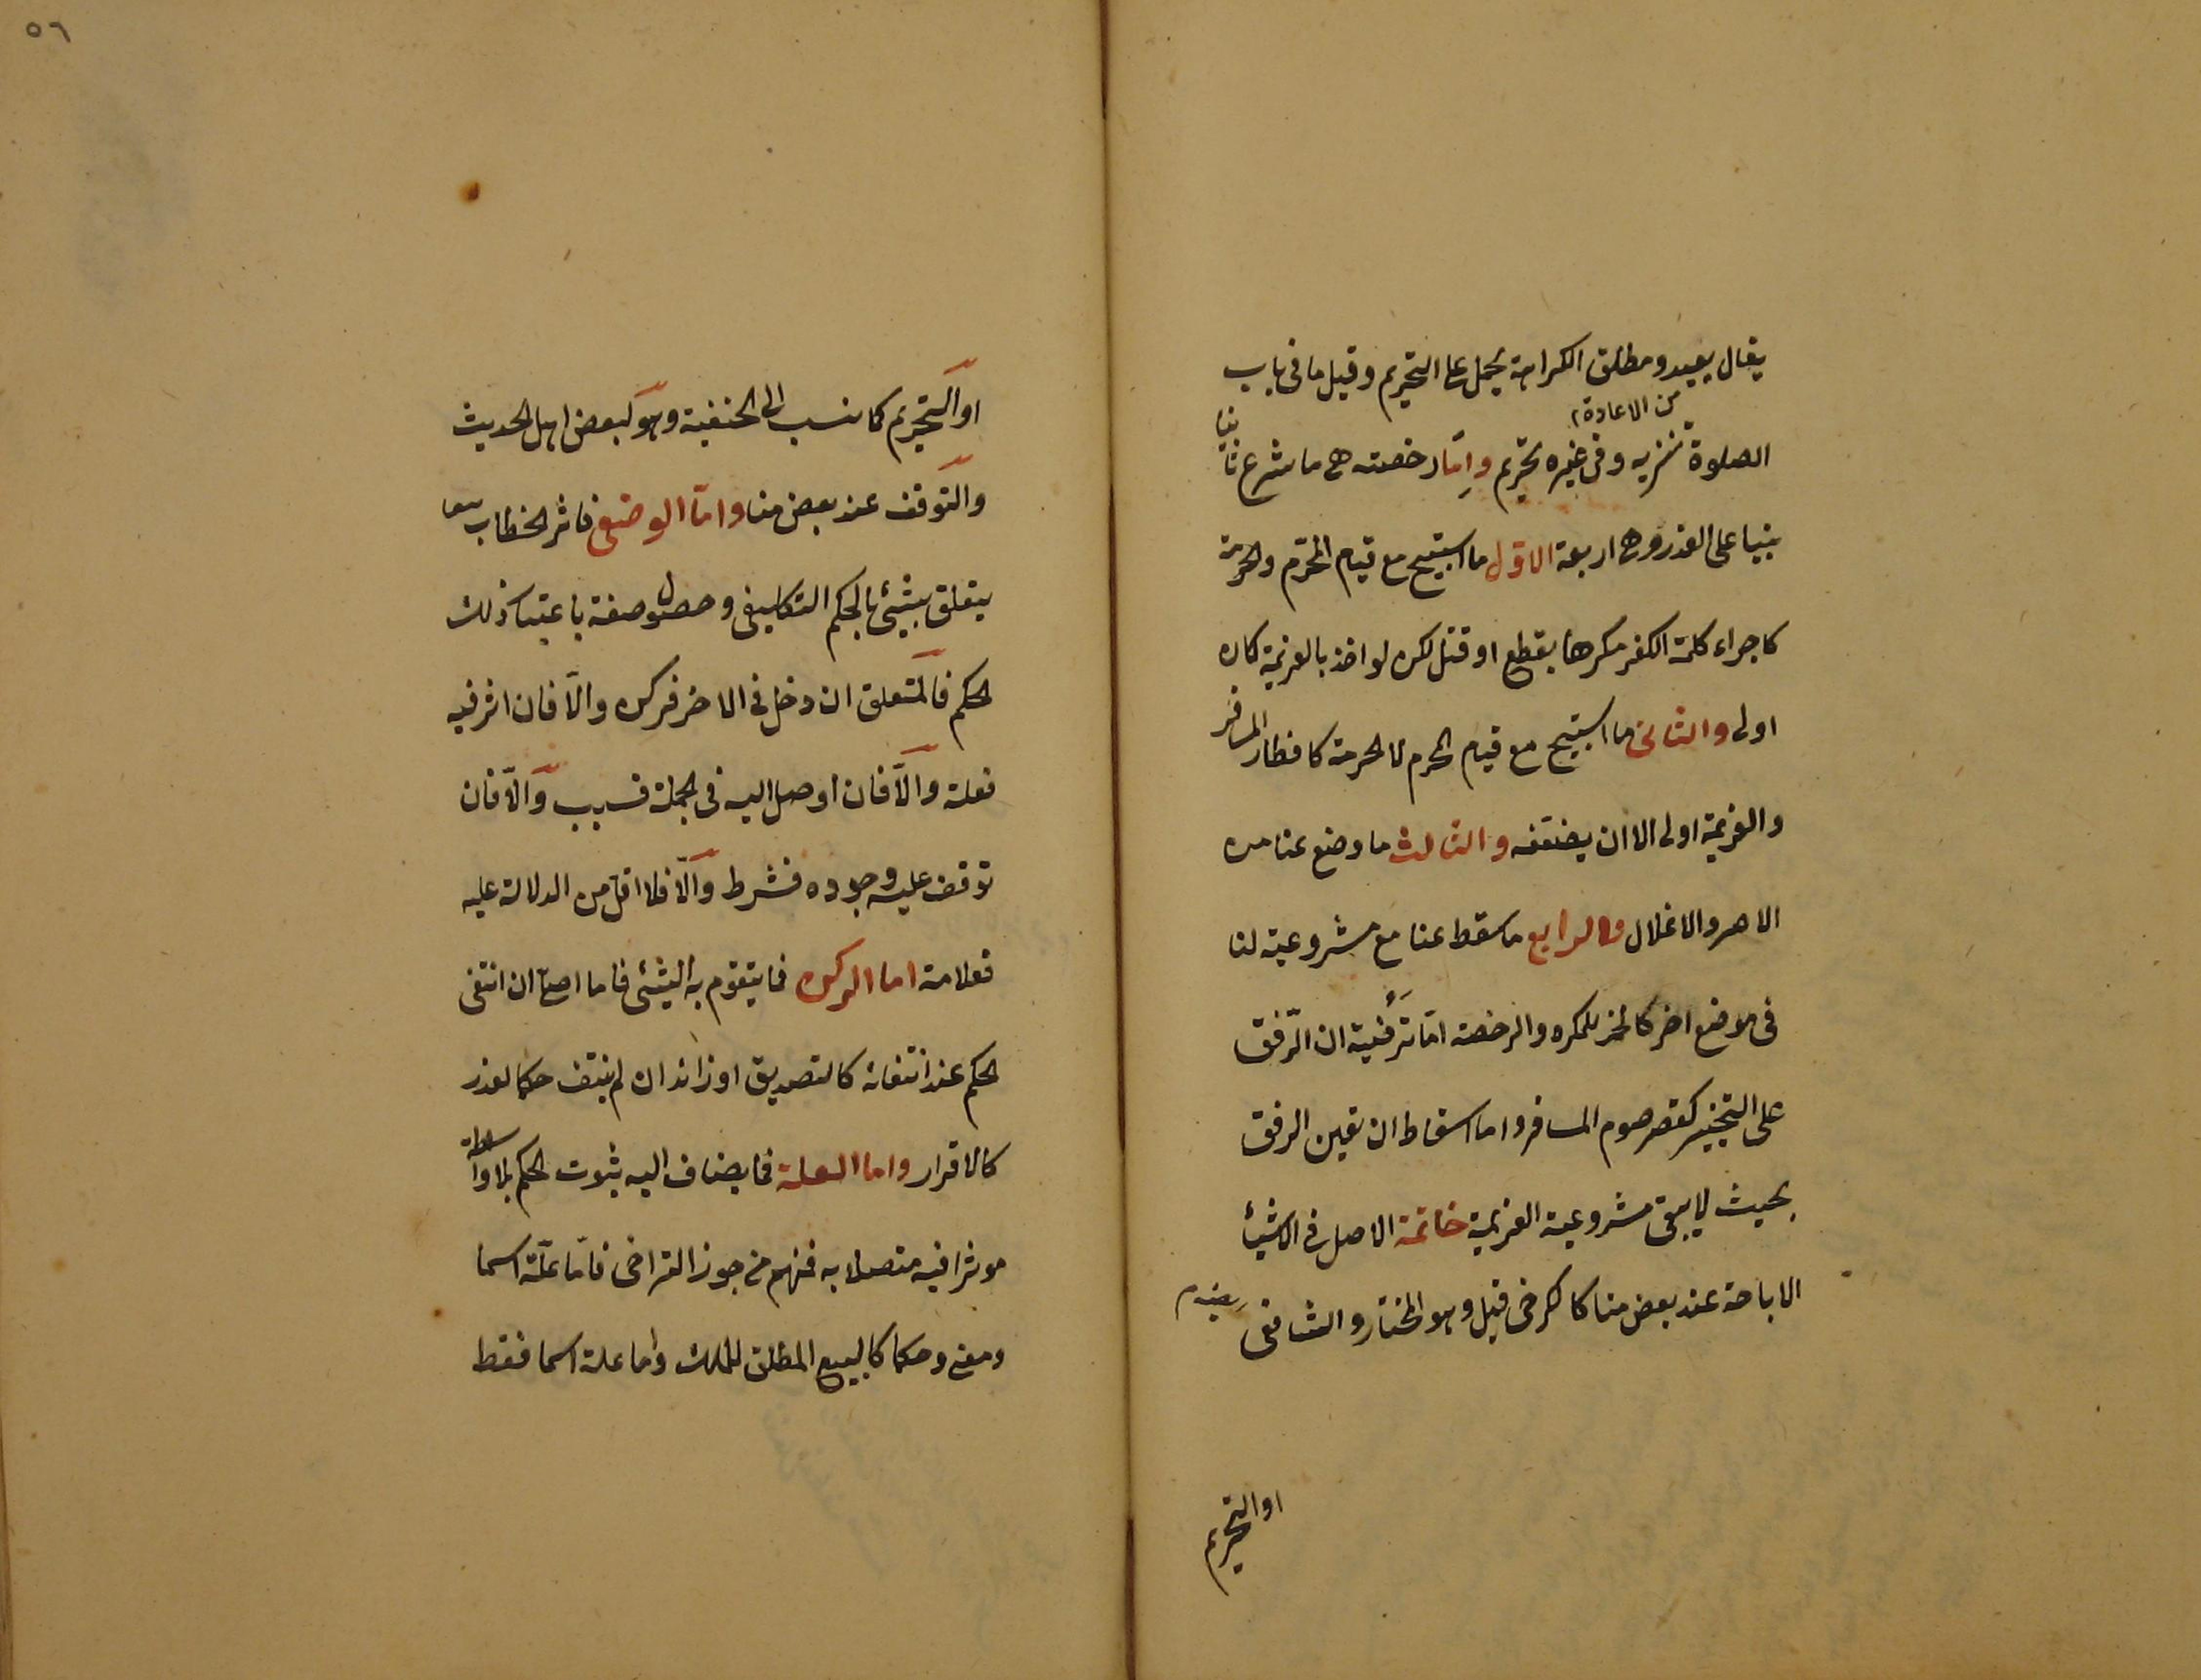 يقال يعيد ومطلق الكراهة يحمل على التحريم وقيل ما فى باب
من الاعادة
الصلوة تنزيه وفى غيره تحريم واما رخصة هى ما شرع ثانيا
بنيا على العذر وهى اربعة الاول ما استبيح مع قيام المحرم والحرمة
كاجراء كلمة الكفر مكرها بقطع او قتل لكن لو اخذ بالعزيمة كان
اولى والثانى ما استبيح مع قيام المحرم لا الحرمة كافطار المسافر
والعزيمة اولى الا ان يضعفه والثالث ما وضع عنا من
الاصر والاغلال والرابع ما سقط عنا مع مشروعية لنا
فى موضع اخر كالخمر للمكره والرخصة اما ترفيه ان الرفق
على التخيير كقصر صوم المسافر واما اسقاط ان تعين الرفق
بحيث لا يبقى مشروعية العزيمة خاتمة الاصل فى الاشياء
الاباحة عند بعض منا كالكرخى قيل وهو المختار والشافعى
او التحريم
٥٦
او التحريم كما نسب الى الحنفية وهو لبعض اهل الحديث
والتوقف عند بعض منا واما الوضعى فاثر الخطاب
يتعلق بشئ بالحكم التكليفى وحصول صفة باعتبار ذلك
الحكم فالمتعلق ان دخل فى الاخر فركن والا فان اثر فيه
فعلة والا فان اوصل اليه فى الجملة فسبب والا فان
توقف عليه وجوده فشرط والا فلا اقل من الدلالة عليه
فعلامة اما الركن فما يتقوم به الشئ فاما اصلى ان انتفى
الحكم عند انتفائه كالتصديق او زائد ان لم ينتف حكما لعذر
كالاقرار واما العلة فما يضاف اليه ثبوت الحكم بلا واسطة
موثرا فيه متصلا به فمنهم من جوز التراخى فاما علة اسما
ومعنى وحكما كالبيع المطلق للملك واما علة اسما فقط